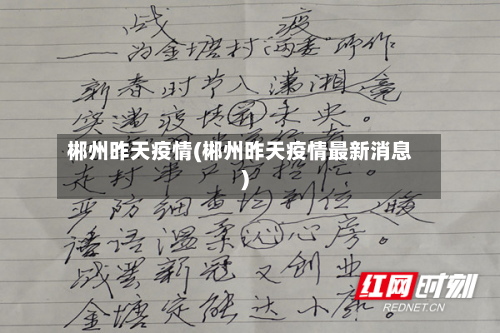 战 疫
——为金塘村“两委”所作
新春时节入潇湘境
突遇疫情
郴州昨天疫情(郴州昨天疫情最新消息
)
走村串户防控忙。
严防细查均到位
话语温柔沁心房。
战罢新冠又创业
金塘定能达小康。
红网时刻
REDNET.CN